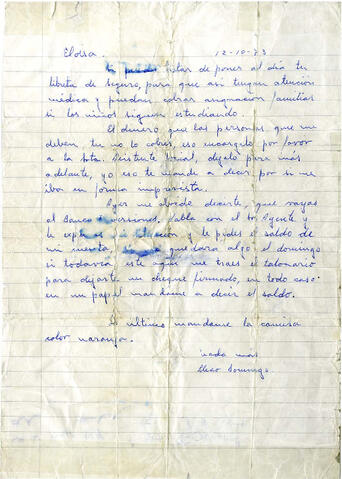 Eloisa. 12-10-73
tratar de poner al día tu
libreta de seguro, para que asi tengan atención
médica y puedan cobrar asignación familiar
si los niños siguen estudiando.
El dinero que las personas que me
deben, tu no lo cobres, eso encargalo por favor
a la Asistente Social, dejalo para mas
adelante, yo eso te mande a decir por si me
iba en forma imprevista.
Ayer me olvidé decirte, que vayas
al Banco habla con el Agente y
le explicas la situación y le pides el saldo de
mi cuenta, que dara algo el domingo
si todavía este aqui me traes el talonario
para dejarte un cheque firmado, en todo caso
en un papel mandame a decir el saldo.
Lo ultimo mandame la camisa
color naranja.
nada mas
Domingo